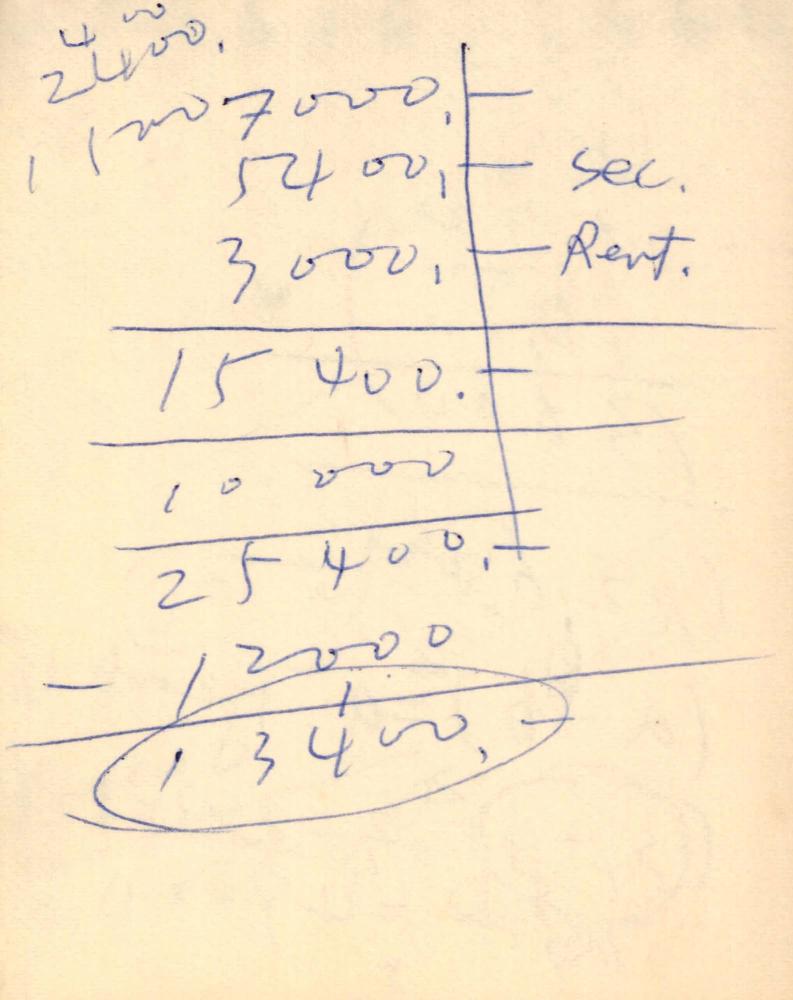 400
2400.
1 1000 7000.—
5400.— Sec.
3000.— Rent.
15 400.—
10 000
25 400.—
- 12000
13400.—